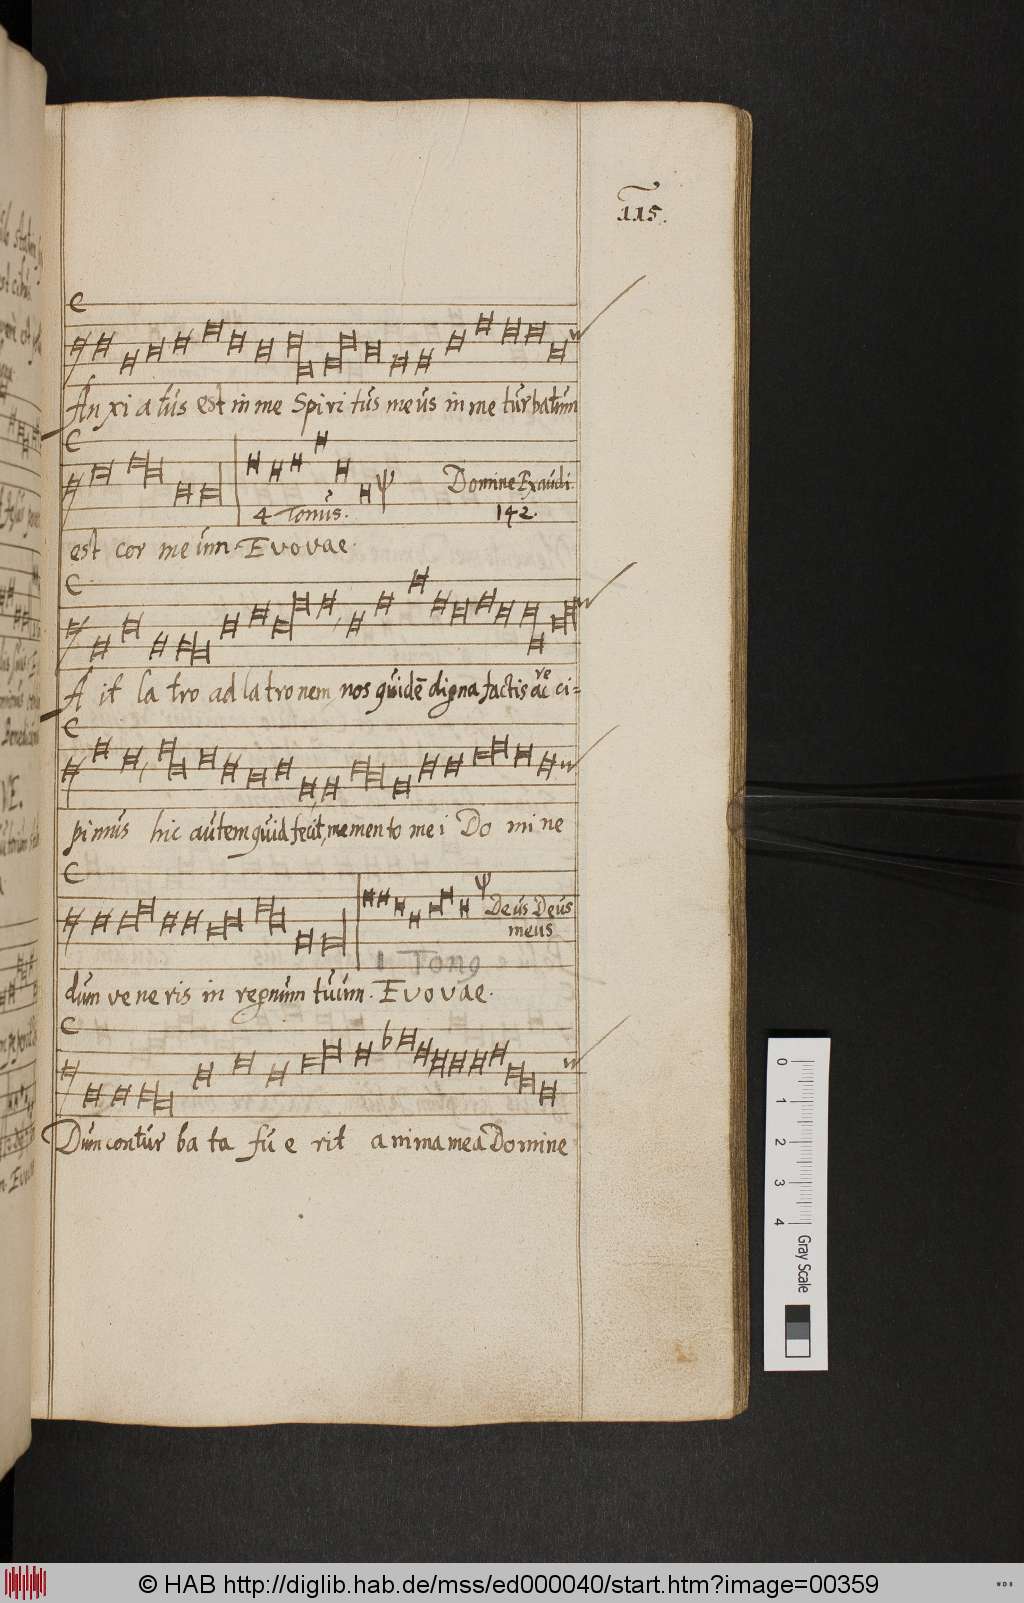 115.
Anxiatus est in me Spiritus meus in me turbatum
Domine Exaudi.
4 Tonus. 142.
est cor meum. Evovae.
Ait latro ad latronem nos quidē digna factis re
ac ci=
pimus hic autem quid fecit, memento mei Domine
Deus Deus
meus
1 Tong
dum veneris in regnum tuum. Evovae.
Dum conturbata fuerit anima mea Domine
0 1 2 3 4 Gray Scale
© HAB http://diglib.hab.de/mss/ed000040/start.htm?image=00359